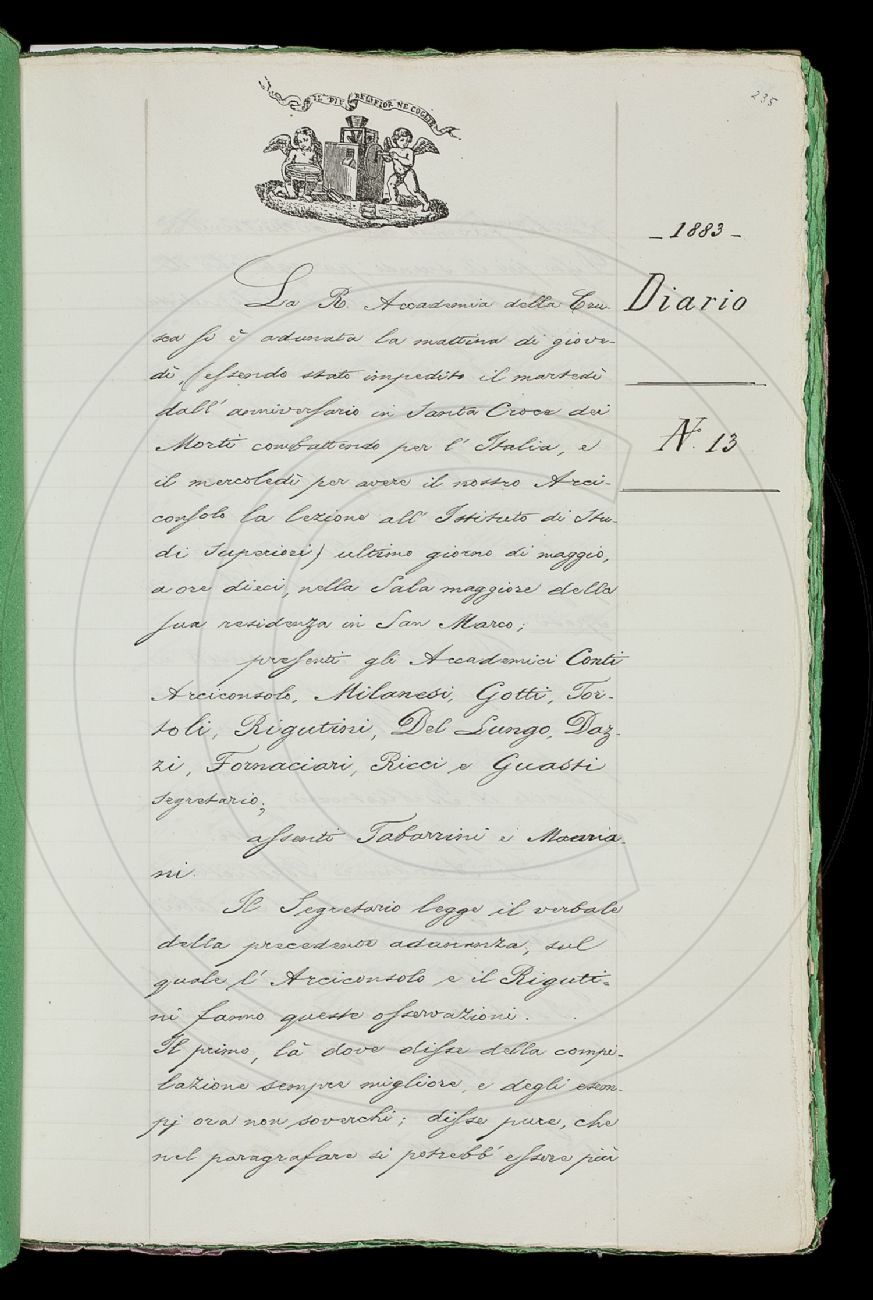 IL PIÙ BEL FIOR NE COGLIE
235
- 1883 -
Diario
N.º 13
La R. Accademia della Cru-
sca si è adunata la mattina di giove-
dì, (essendo stato impedito il martedì
dall' anniversario in Santa Croce dei
Morti combattendo per l' Italia, e
il mercoledì per avere il nostro Arci-
consolo la lezione all' Istituto di Stu-
di Superiori) ultimo giorno di maggio,
a ore dieci, nella Sala maggiore della
sua residenza in San Marco;
presenti gli Accademici Conti
Arciconsolo, Milanesi, Gotti, Tor-
toli, Rigutini, Del Lungo, Daz-
zi, Fornaciari, Ricci e Guasti
segretario;
assenti Tabarrini e
ni.
Il Segretario legge il verbale
della precedente adunanza, sul
quale l' Arciconsolo e il Riguti-
ni fanno queste osservazioni.
Il primo, là dove disse della compi-
lazione sempre migliore, e degli esem-
pj ora non soverchi; disse pure, che
nel paragrafare si potrebb' essere più